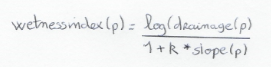 wetnessindex(p) = log(drainage(p)
1 + k * slope(p)